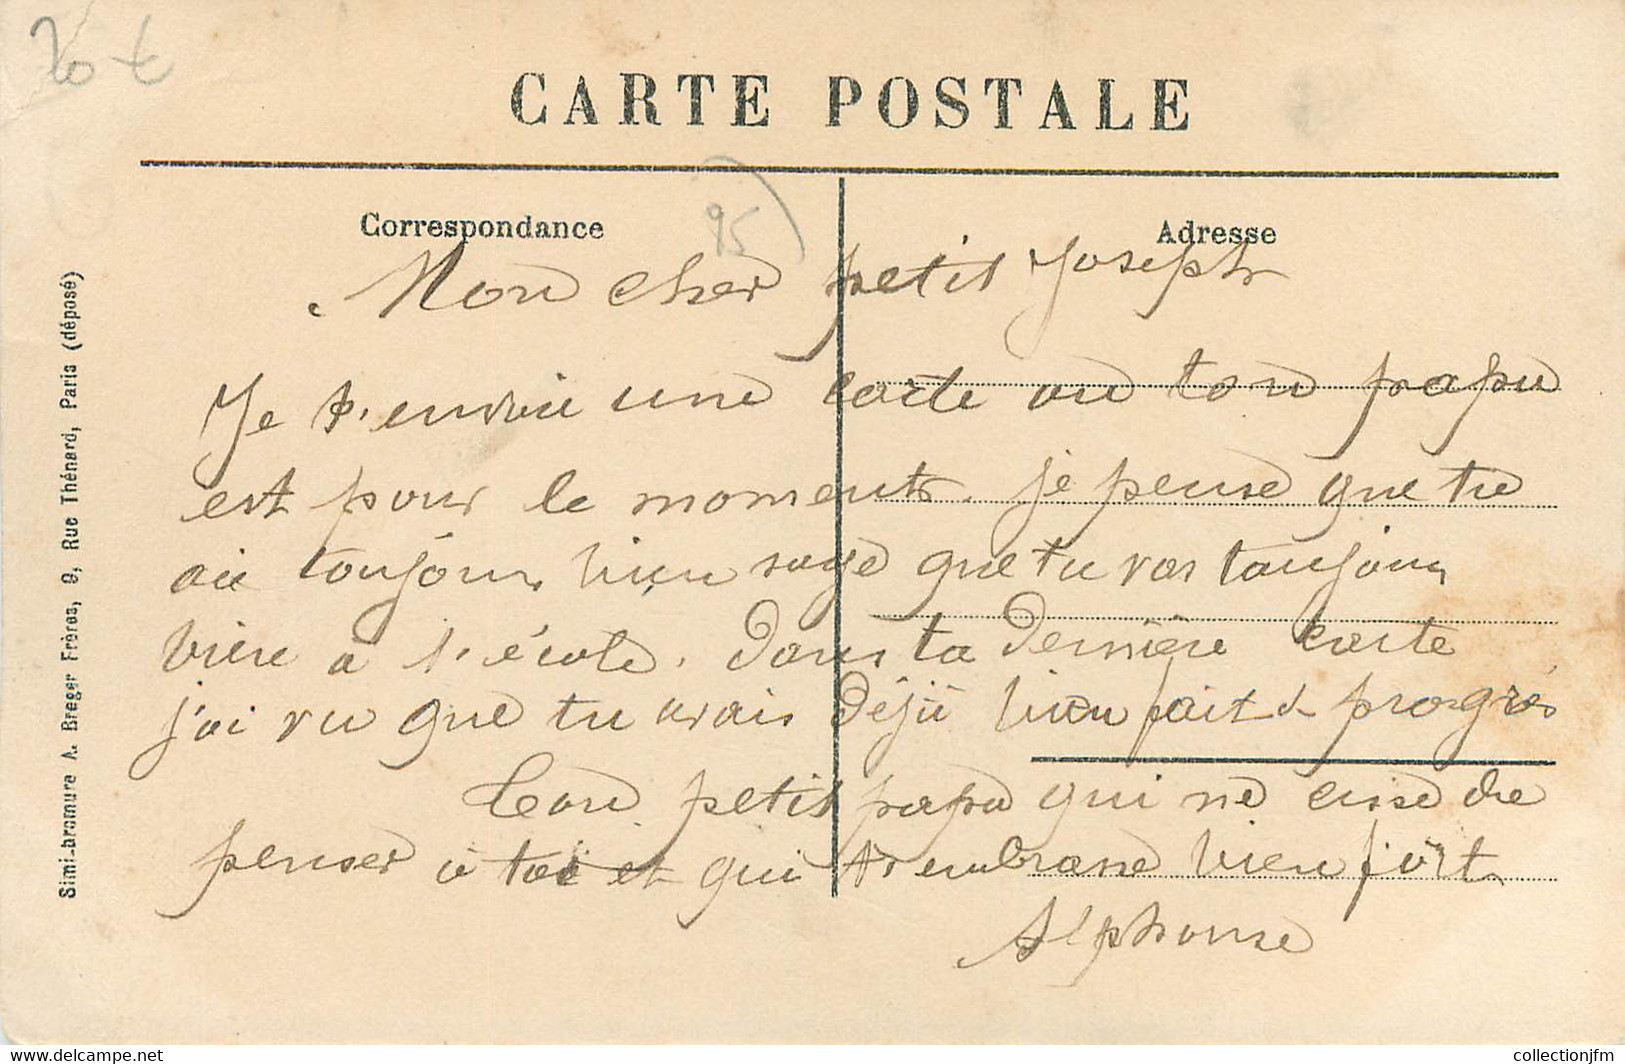 20 €
CARTE POSTALE
95
Correspondance
Adresse
Mon cher petit Joseph
Je t'envoie une carte ou ton papa
est pour le moment. je pense que tu
ai toujours bien sage que tu vas toujours
bien a l'école. Dans ta dernière carte
j'ai vu que tu avais déjà bien fait de progrès
Ton petit papa qui ne cisse de
penser à toi et qui t'embrasse bien fort
Alphonse
Simi-bromure A. Breger Frères, 9, Rue Thénard, Paris (déposé)
https://www.delcampe.net
collectionjfm